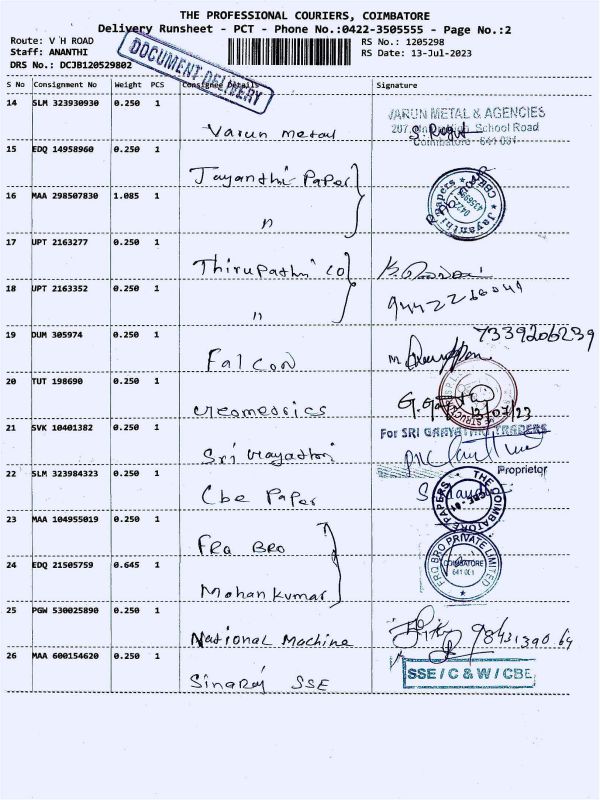 THE PROFESSIONAL COURIERS, COIMBATORE
Delivery Runsheet - PCT - Phone No.:0422-3505555 - Page No.:2
Route: V H ROAD
RS No.: 1205298
Staff: ANANTHI
RS Date: 13-Jul-2023
DRS No.: DCJB120529802
DOCUMENT DELIVERY
S No Consignment No Weight PCS Consignee Details Signature
14 SLM 323930930 0.250 1
Varun metal
VARUN METAL & AGENCIES
207, School Road
Coimbatore - 641 001
15 EDQ 14958960 0.250 1
Jayanthi Paper
16 MAA 298507830 1.085 1
"
Jayanthi Papers
CBE
0422
17 UPT 2163277 0.250 1
Thirupathi Co
18 UPT 2163352 0.250 1
"
19 DUM 305974 0.250 1
7339206239
Falcon
20 TUT 198690 0.250 1
creomesrics
13/07/23
21 SVK 10401382 0.250 1
For SRI GAAYATHRI TRADERS
Sri Gayathri
Proprietor
22 SLM 323984323 0.250 1
Cbe Paper
THE COIMBATORE PAPERS
CBE - 01
23 MAA 104955019 0.250 1
FRQ BRO
24 EDQ 21505759 0.645 1
Mohan Kumar
FRQ BRO PRIVATE LIMITED
COIMBATORE
641 001
25 PGW 530025890 0.250 1
National Machine
26 MAA 600154620 0.250 1
Sinaraj SSE
SSE / C & W / CBE